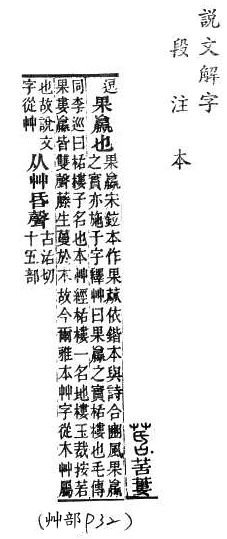 說文解字
段注本
苦蔞
逗
果蠃也
果蠃宋鉉本作果蓏依鍇本與詩合豳風果蠃
之實亦施于字釋艸曰果蠃之實栝樓也毛傳
同李巡曰栝樓子名也本艸經栝樓一名地樓玉裁按苦
果婁蠃皆雙聲藤生蔓於木故今爾雅本艸字從木艸屬
也故說文
字從艸
从艸昏聲
古活切
十五部
(艸部P32)